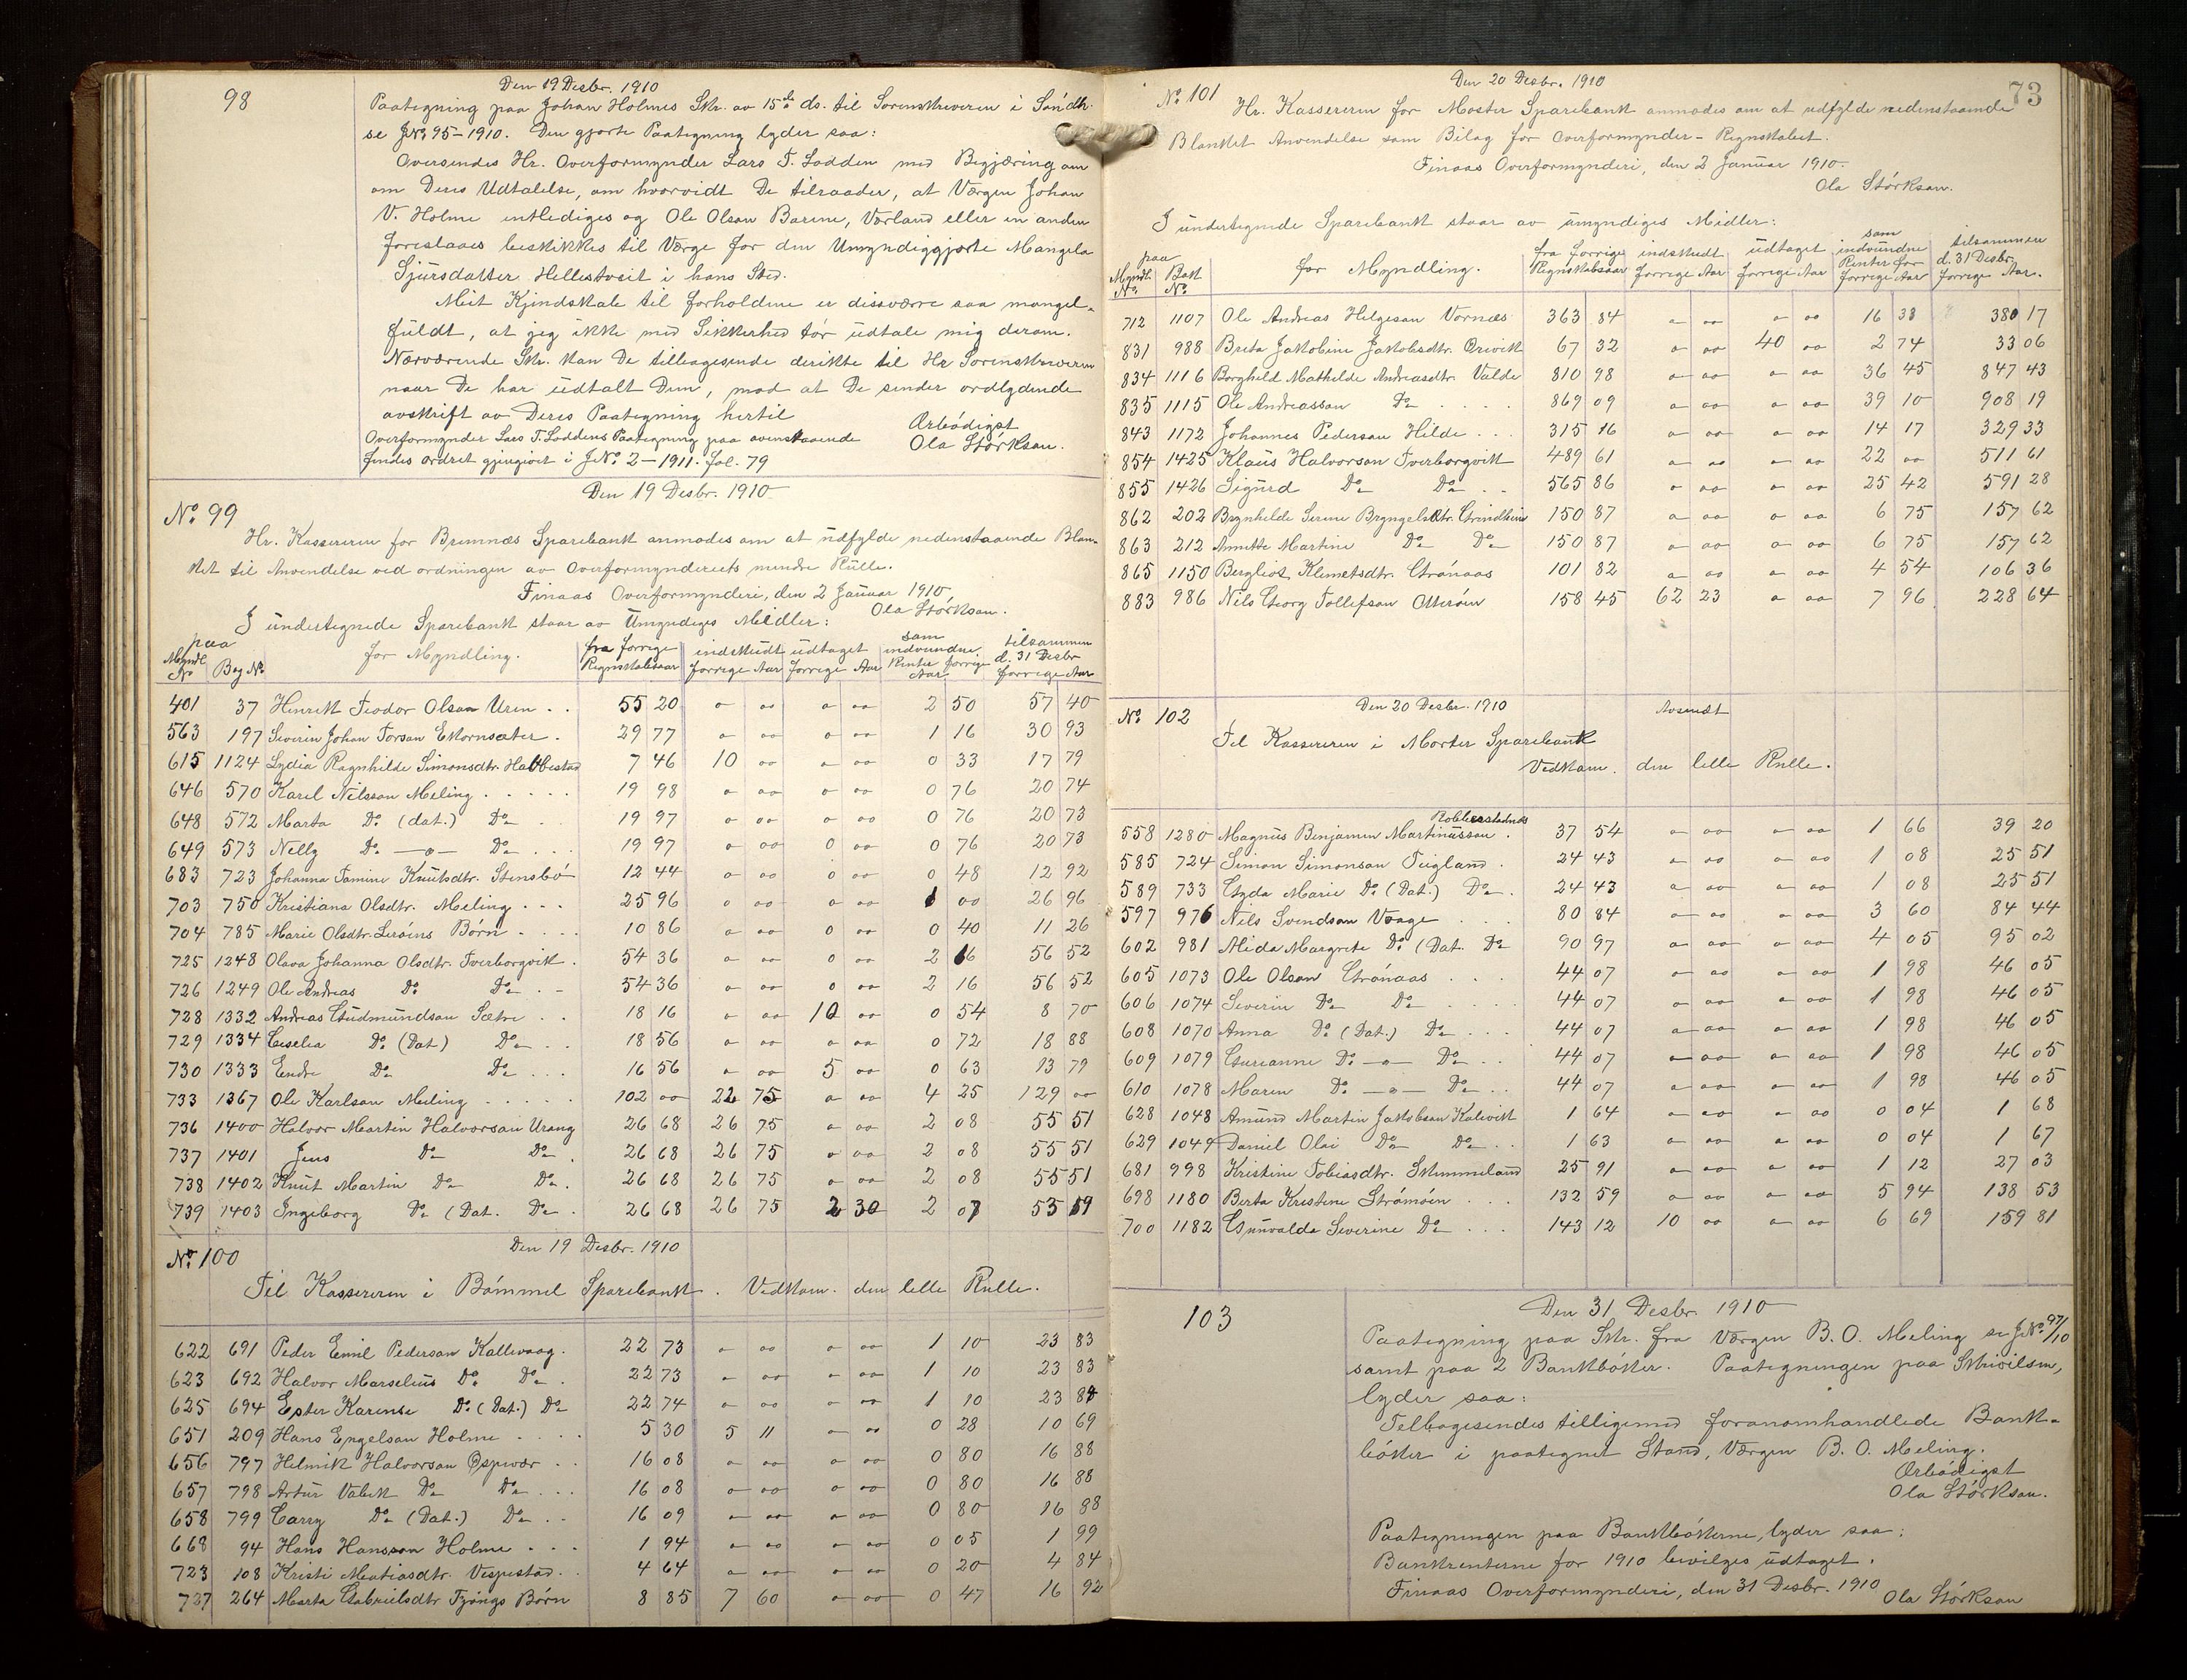 98
Den 19 Desbr. 1910
Paategning paa Johan Holmes Skr. av 15de ds. til Sorenskriveren i Söndh.
se J.No. 95-1910. Den gjorte Paategning lyder saa:
Oversendes Hr. Overformynder Lars T. Lodden med Begjæring om
om Deres Udtalelse, om hvorvidt De tilraader, at Værgen Johan
V. Holme entlediges og Ole Olson Barine, Vorland eller en anden
foreslaaes beskikkes til Værge for den Umyndiggjorte Mangela
Sjursdatter Hellestveit i hans Sted.
Mit Kjendskab til forholdene er disværre saa mangel-
fuldt, at jeg ikke med Sikkerhed tör udtale mig derom.
Nærværende Skr. kan De tilbagesende direkte til Hr Sorenskriveren
naar De har udtalt Dem, mod at De sender ordlydende
avskrift av Deres Paategning hertil
Ærbödigst
Ola Störkson.
Overformynder Lars T. Loddens Paategning paa ovenstaaende
findes ordret gjengivet i J.No. 2-1911. fol. 79
Den 19 Desbr. 1910
No. 99
Hr. Kassereren for Bremnæs Sparebank anmodes om at udfylde nedenstaaende Blan-
ket til Anvendelse ved ordningen av Overformynderiets mindre Rulle.
Finaas Overformynderi, den 2 Januar 1910.
Ola Störkson.
I undertegnede Sparebank staar av Umyndiges Midler:
paa Myndl. No. | Bog No. | for Myndling. | fra forrige Regnskabsaar | indskudt forrige Aar | udtaget forrige Aar | som indvundne Renter forrige Aar | tilsammen d. 31 Desbr forrige Aar
401 37 Henrik Teodor Olson Uren . . 55 20 o oo o oo 2 50 57 40
563 197 Severin Johan Torson Ekornsæter . 29 77 o oo o oo 1 16 30 93
615 1124 Lydia Ragnhilde Simonsdtr. Habbestad 7 46 10 oo o oo 0 33 17 79
646 570 Karl Nilsson Meling . . . . . 19 98 o oo o oo 0 76 20 74
648 572 Marta Do. (dat.) Do. . . 19 97 o oo o oo 0 76 20 73
649 573 Nelly Do. —o— Do. . . . 19 97 o oo o oo 0 76 20 73
683 723 Johanna Tomine Knutsdtr. Stensbö 12 44 o oo o oo 0 48 12 92
703 750 Kristiana Olsdtr. Meling . . . 25 96 o oo o oo 1 00 26 96
704 785 Marie Olsdtr. Leröens Börn . . . . 10 86 o oo o oo 0 40 11 26
725 1248 Olava Johanna Olsdtr. Tverborgvik . 54 36 o oo o oo 2 16 56 52
726 1249 Ole Andreas Do. Do. . . 54 36 o oo o oo 2 16 56 52
728 1332 Andreas Gudmundson Sætre . . 18 16 o oo 10 oo 0 54 8 70
729 1334 Ceselia Do. (Dat) Do. . . 18 56 o oo o oo 0 72 18 88
730 1333 Endre Do. Do. . . . 16 56 o oo 5 oo 0 63 13 79
733 1367 Ole Karlson Meling . . . . . 102 oo 22 75 o oo 4 25 129 oo
736 1400 Halvor Martin Halvorson Urang 26 68 26 75 o oo 2 08 55 51
737 1401 Jens Do. Do. . 26 68 26 75 o oo 2 08 55 51
738 1402 Knut Martin Do. Do. . 26 68 26 75 o oo 2 08 55 51
739 1403 Ingeborg Do. (Dat. Do. . 26 68 26 75 2 30 2 07 53 19
No. 100
Den 19 Desbr. 1910
Til Kassereren i Bömmel Sparebank. Vedkom. den lelle Rulle.
622 691 Peder Emil Pederson Kallevaag. 22 73 o oo o oo 1 10 23 83
623 692 Halvor Marselius Do. Do. . 22 73 o oo o oo 1 10 23 83
625 694 Ester Karense Do. (Dat.) Do. 22 74 o oo o oo 1 10 23 84
651 209 Hans Engelson Holme . . . . 5 30 5 11 o oo 0 28 10 69
656 797 Helmik Halvorson Espevær . . 16 08 o oo o oo 0 80 16 88
657 798 Artur Valek Do. Do. . . . 16 08 o oo o oo 0 80 16 88
658 799 Carry Do. (Dat.) Do. . . 16 09 o oo o oo 0 80 16 88
668 94 Hans Hansson Holme . . . 1 94 o oo o oo 0 05 1 99
723 108 Kristi Matiasdtr. Vespestad . . 4 64 o oo o oo 0 20 4 84
727 264 Marta Gabrielsdtr Tjongs Börn 8 85 7 60 o oo 0 47 16 92
73
No. 101
Den 20 Desbr. 1910
Hr. Kassereren for Moster Sparebank anmodes om at udfylde nedenstaaende
Blanket Anvendelse som Bilag for Overformynder-Regnskabet.
Finaas Overformynderi, den 2 Januar 1910.
Ola Störkson.
I undertegnede Sparebank staar av umyndiges Midler:
paa Myndl. No. | Bok No. | for Myndling. | fra forrige Regnskabsaar | indskudt forrige Aar | udtaget forrige Aar | som indvundne Renter for forrige Aar | tilsammen d. 31 Desbr. forrige Aar.
712 1107 Ole Andreas Helgeson Vornæs 363 84 o oo o oo 16 33 380 17
831 988 Brita Jakobine Jakobsdtr. Örevik 67 32 o oo 40 oo 2 74 33 06
834 1116 Borghild Mathilde Andreasdtr. Valde 810 98 o oo o oo 36 45 847 43
835 1115 Ole Andreasson Do. . . . . 869 09 o oo o oo 39 10 908 19
843 1172 Johannes Pederson Hilde . . . 315 16 o oo o oo 14 17 329 33
854 1425 Klaus Halvorson Tverborgvik 489 61 o oo o oo 22 oo 511 61
855 1426 Sigurd Do. Do. . . 565 86 o oo o oo 25 42 591 28
862 202 Brynhilde Serine Bryngelsdtr. Grindheim 150 87 o oo o oo 6 75 157 62
863 212 Annette Martine Do. Do. 150 87 o oo o oo 6 75 157 62
865 1150 Bergliot Klemetsdtr. Grönaas 101 82 o oo o oo 4 54 106 36
883 986 Nils Georg Tollefson Otteröen 158 45 62 23 o oo 7 96 228 64
No. 102
Den 20 Desbr. 1910
Avsendt
Til Kassereren i Moster Sparebank
Vedkom. den lelle Rulle.
558 1280 Magnus Benjamin Martinusson . 37 54 o oo o oo 1 66 39 20
585 724 Simon Simonson Tuigland . 24 43 o oo o oo 1 08 25 51
589 733 Gyda Marie Do. (Dat.) Do. . 24 43 o oo o oo 1 08 25 51
597 976 Nils Svendson Vaage . . . 80 84 o oo o oo 3 60 84 44
602 981 Alida Margrete Do. (Dat. Do. 90 97 o oo o oo 4 05 95 02
605 1073 Ole Olson Grönaas . . . 44 07 o oo o oo 1 98 46 05
606 1074 Severin Do. Do. . . . . 44 07 o oo o oo 1 98 46 05
608 1070 Anna Do. (Dat.) Do. . . . 44 07 o oo o oo 1 98 46 05
609 1079 Gurianne Do. —o— Do. . . 44 07 o oo o oo 1 98 46 05
610 1078 Maren Do. —o— Do. . . 44 07 o oo o oo 1 98 46 05
628 1048 Amund Martin Jakobson Kalevik 1 64 o oo o oo 0 04 1 68
629 1049 Daniel Olai Do. Do. . . 1 63 o oo o oo 0 04 1 67
681 998 Kristine Tobiasdtr. Skimmeland 25 91 o oo o oo 1 12 27 03
698 1180 Berta Kristine Strömöen . . . 132 59 o oo o oo 5 94 138 53
700 1182 Gunvalda Severine Do. . . . 143 12 10 oo o oo 6 69 159 81
103
Den 31 Desbr. 1910
Paategning paa Skr. fra Værgen B. O. Meling se J.No. 97/10
samt paa 2 Bankböker. Paategningen paa Skrivelsen,
lyder saa:
Telbagesendes tilligemed foranomhandlede Bank-
böker i paategnet Stand, Værgen B. O. Meling.
Ærbödigst
Ola Störkson.
Paategningen paa Bankbökerne, lyder saa:
Bankrenterne for 1910 bevilges udtaget.
Finaas Overformynderi, den 31 Desbr. 1910
Ola Störkson